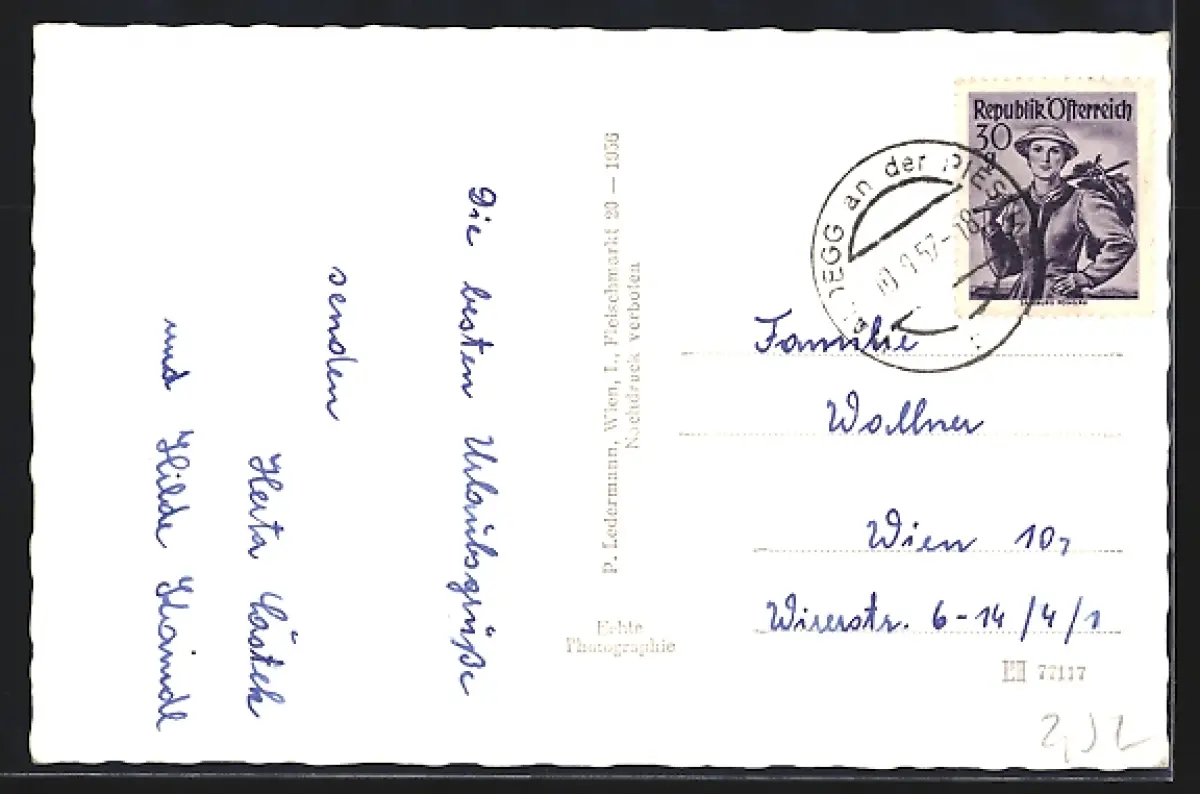 Die besten Urlaubsgrüße
senden
Herta
und Hilde
P. Ledermann, Wien, I., Fleischmarkt 20 — 1956
Nachdruck verboten
Echte
Photographie
Republik Österreich
30
g
an der PIES
57-18
Familie
Wollner
Wien 10,
Wirerstr. 6-14/4/1
77117